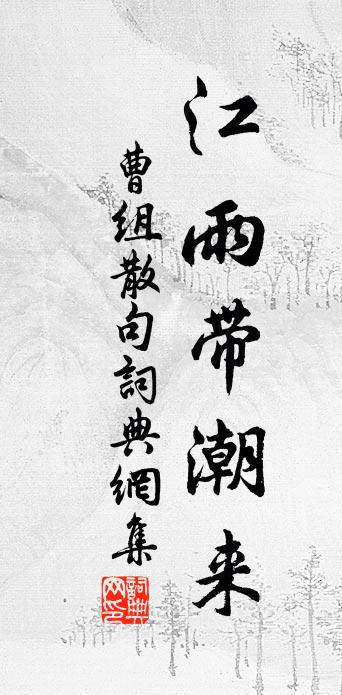 江雨带潮来
曹组散句詞典網集